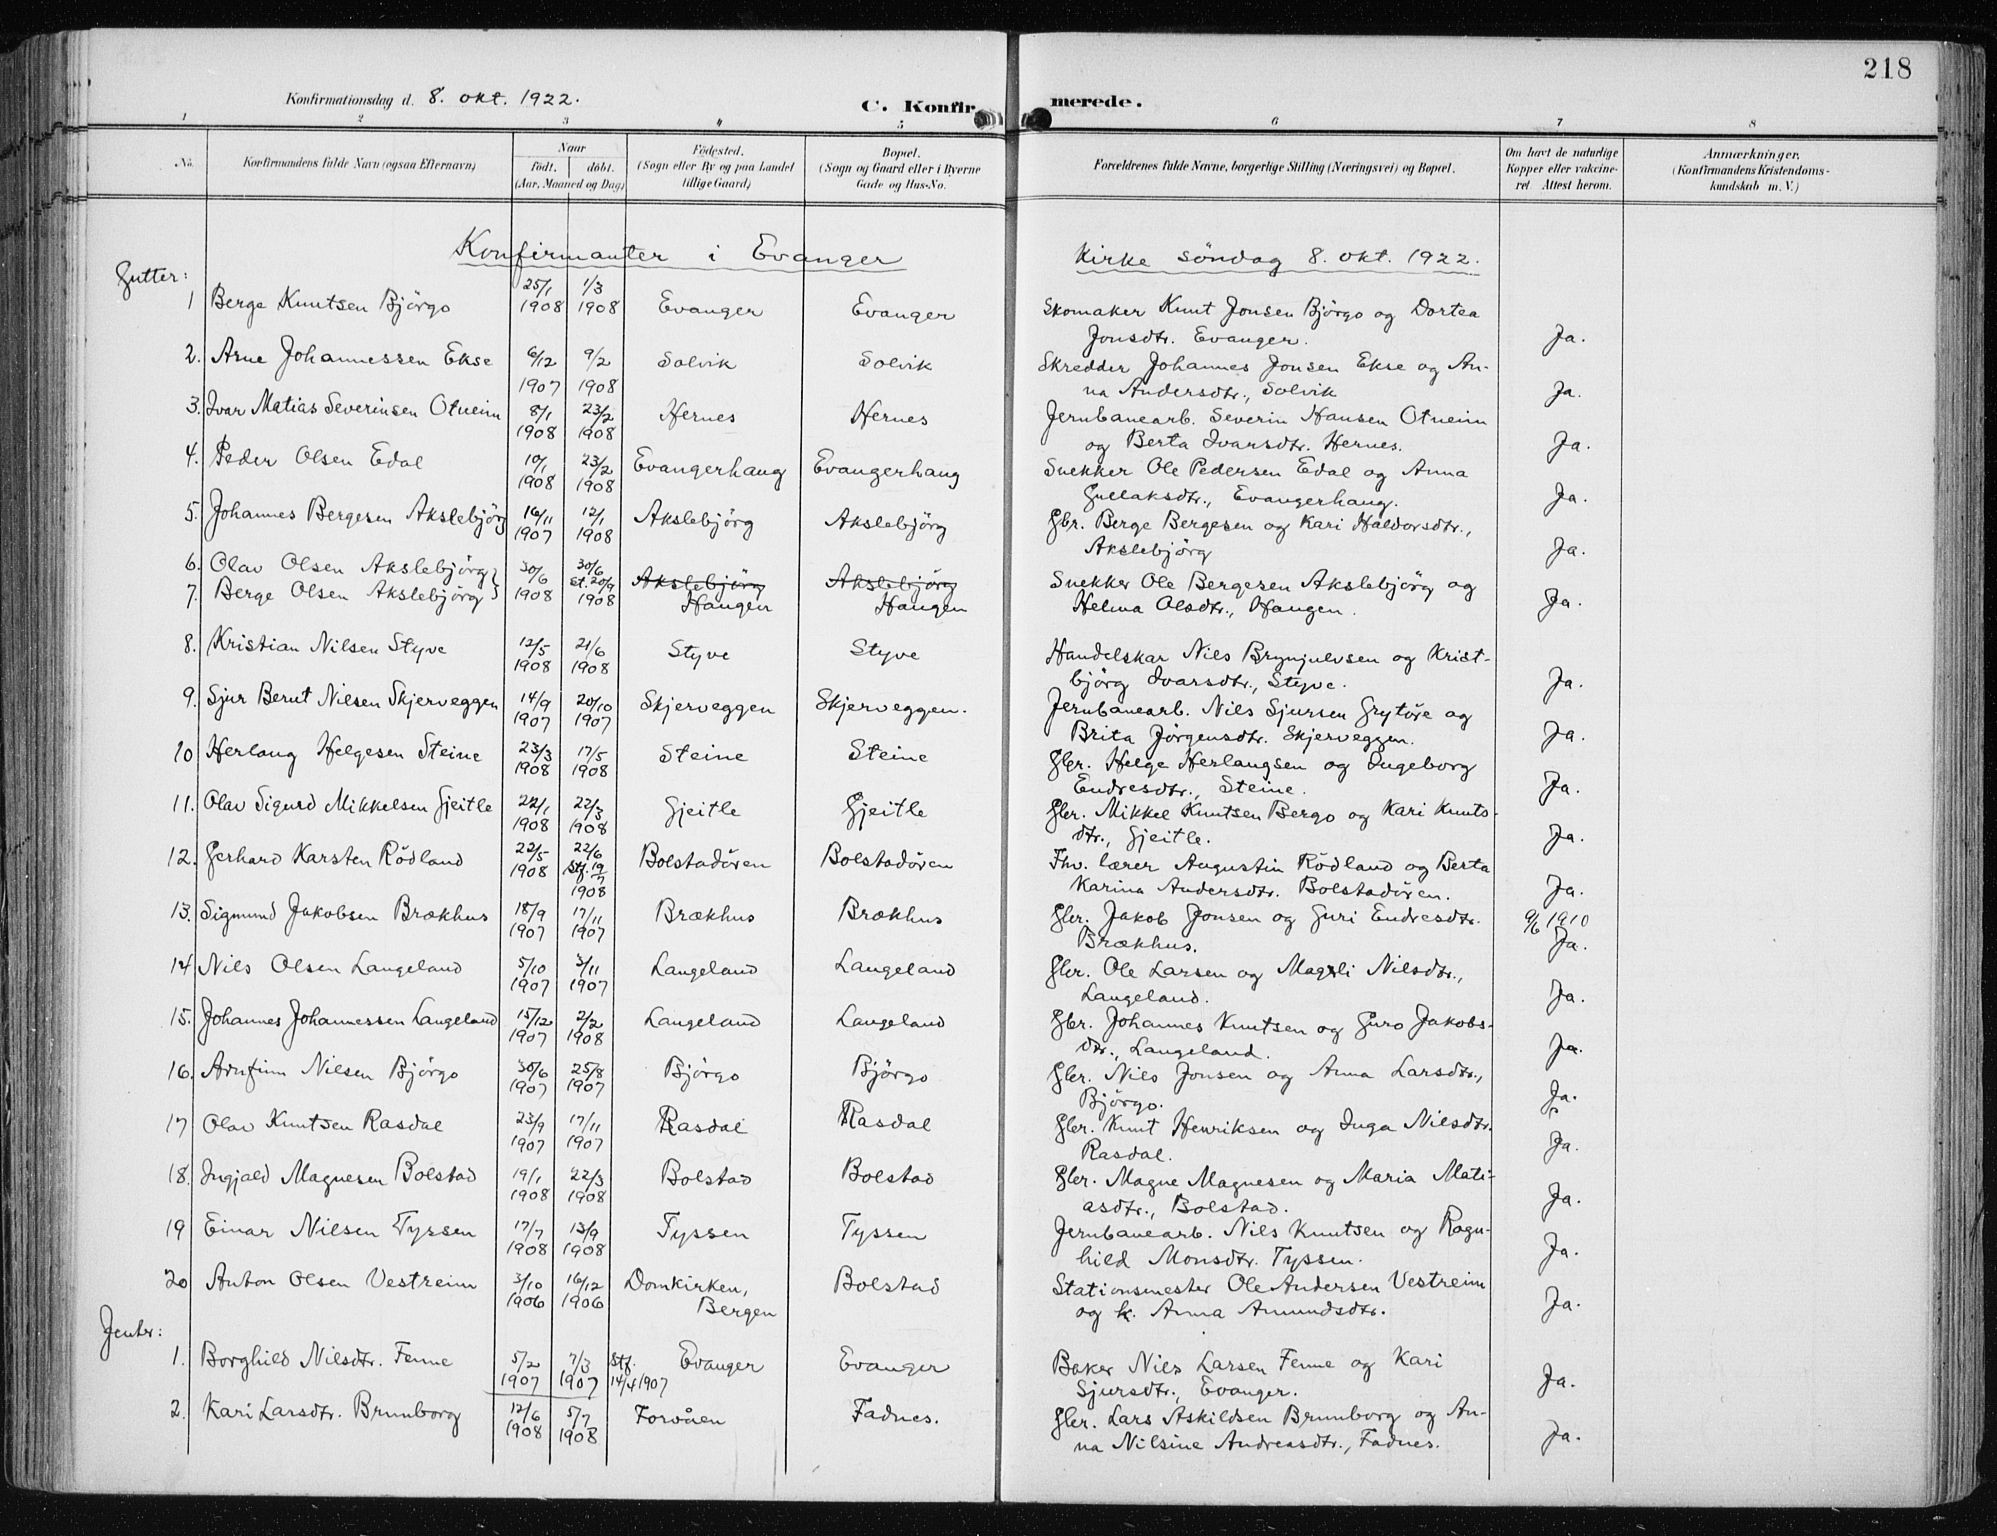 218
Konfirmationsdag d. 8. okt. 1922.
C. Konfirmerede.
1 2 3 4 5 6 7 8
No.
Konfirmandens fulde Navn (ogsaa Efternavn)
Naar
født. døbt.
(Aar, Maaned og Dag)
Fødested.
(Sogn eller By og paa Landet
tillige Gaard)
Bopæl.
(Sogn og Gaard eller i Byerne
Gade og Hus-No.
Forældrenes fulde Navne, borgerlige Stilling (Næringsvei) og Bopæl.
Om havt de naturlige
Kopper eller vakcine-
ret Attest herom.
Anmærkninger.
(Konfirmandens Kristendoms-
kundskab m. V.)
Konfirmanter i Evanger Kirke söndag 8. okt. 1922.
Gutter:
1 Berge Knutsen Björgo 25/1 1908 1/3 1908 Evanger Evanger Skomaker Knut Jonsen Björgo og Dortea
Jonsdtr. Evanger. Ja.
2. Arne Johannessen Ekse 6/12 1907 9/2 1908 Solvik Solvik Skredder Johannes Jonsen Ekse og An-
na Andersdtr., Solvik Ja.
3. Ivar Matias Severinsen Otneim 8/1 1908 23/2 1908 Hernes Hernes Jernbanearb. Severin Hansen Otneim
og Berta Ivarsdtr. Hernes. Ja.
4. Peder Olsen Edal 10/1 1908 23/2 1908 Evangerhaug Evangerhaug Snekker Ole Pedersen Edal og Anna
Gullaksdtr., Evangerhaug. Ja.
5. Johannes Bergesen Akslebjörg 16/11 1907 12/1 1908 Akslebjörg Akslebjörg Gbr. Berge Bergesen og Kari Haldorsdtr.,
Akslebjörg Ja.
6. Olav Olsen Akslebjörg }
7. Berge Olsen Akslebjörg } 30/6 1908 30/6 st. 20/9 1908 Akslebjörg Haugen Akslebjörg Haugen Snekker Ole Bergesen Akslebjörg og
Helma Olsdtr., Haugen. Ja.
8. Kristian Nilsen Styve 12/5 1908 21/6 1908 Styve Styve Handelskar Nils Brynjulvsen og Krist-
björg Ivarsdtr., Styve. Ja.
9. Sjur Bernt Nilsen Skjerveggen 14/9 1907 20/10 1907 Skjerveggen Skjerveggen. Jernbanearb. Nils Sjursen Grytöre og
Brita Jörgensdtr. Skjerveggen. Ja.
10 Herlaug Helgesen Steine 23/3 1908 17/5 1908 Steine Steine Gbr. Helge Herlaugsen og Ingeborg
Endresdtr., Steine. Ja.
11. Olav Sigurd Mikkelsen Gjeitle 22/1 1908 22/3 1908 Gjeitle Gjeitle Gbr. Mikkel Knutsen Bergo og Kari Knuts-
dtr., Gjeitle. Ja.
12. Gerhard Karsten Rödland 22/5 1908 22/6 Stf. 19/7 1908 Bolstadören Bolstadören Fhv. lærer Augustin Rödland og Berta
Karina Andersdtr. Bolstadören. Ja.
13. Sigmund Jakobsen Brækhus 18/9 1907 17/11 1907 Brækhus Brækhus Gbr. Jakob Jonsen og Guri Endresdtr. 9/6 1910
Brækhus. Ja.
14 Nils Olsen Langeland 5/10 1907 3/11 1907 Langeland Langeland Gbr. Ole Larsen og Magli Nilsdtr.,
Langeland. Ja.
15. Johannes Johannessen Langeland 15/12 1907 2/2 1908 Langeland Langeland Gbr. Johannes Knutsen og Guro Jakobs-
dtr., Langeland. Ja.
16. Arnfinn Nilsen Björgo 30/6 1907 25/8 1907 Björgo Björgo Gbr. Nils Jonsen og Anna Larsdtr.,
Björgo. Ja.
17 Olav Knutsen Rasdal 23/9 1907 17/11 1907 Rasdal Rasdal Gbr. Knut Henriksen og Inga Nilsdtr.
Rasdal. Ja.
18. Ingjald Magnesen Bolstad 19/1 1908 22/3 1908 Bolstad Bolstad Gbr. Magne Magnesen og Maria Mati-
asdtr., Bolstad. Ja.
19 Einar Nilsen Tyssen 17/7 1908 13/9 1908 Tyssen Tyssen Jernbanearb. Nils Knutsen og Ragn-
hild Monsdtr. Tyssen. Ja.
20 Anton Olsen Vestreim 3/10 1906 16/12 1906 Domkirken, Bergen Bolstad Stationsmester Ole Andersen Vestreim
og k. Anna Amundsdtr. Ja.
Jenter:
1. Borghild Nilsdtr. Fenne 5/2 1907 7/3 1907 Stf. 14/4 1907 Evanger Evanger Baker Nils Larsen Fenne og Kari
Sjursdtr., Evanger. Ja.
2. Kari Larsdtr. Brunborg 12/6 1908 5/7 1908 Forvåen Fadnes. Gbr. Lars Askildsen Brunborg og An-
na Nilsine Andreasdtr., Fadnes. Ja.